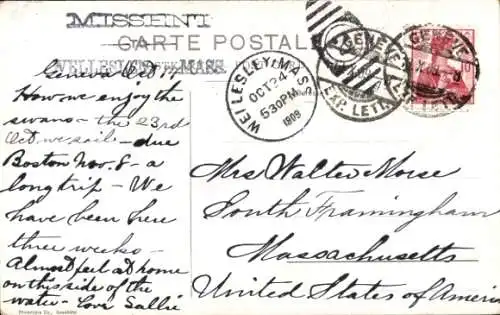 MISSENT
CARTE POSTALE
WELLESLEY MASS.
WELLESLEY, MASS.
OCT 24
5 30 PM
1909
GENEVE
EXP. LETTR.
GENEVE
Geneva Oct. 12
How we enjoy the
swans – the 23rd
Oct. we sail – due
Boston Nov. 8 – a
long trip – We
have been here
three weeks –
Almost feel at home
on this side of the
water – Love Sallie
Mrs Walter Morse
South Framingham
Massachusetts
United States of America